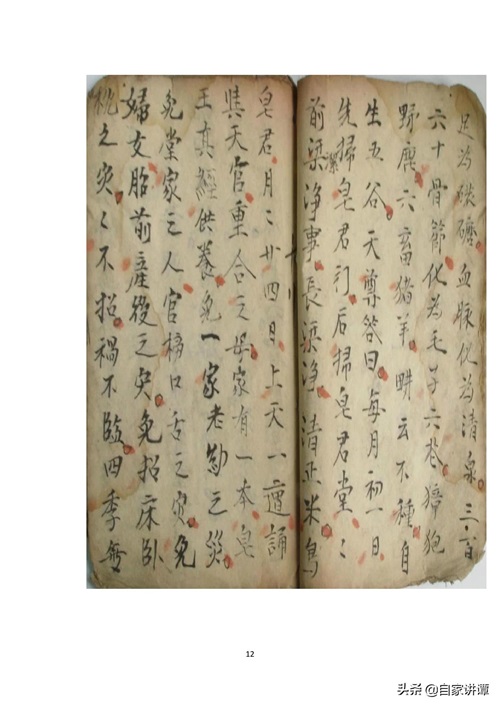 足为磙磄血脉化为清泉三百
六十骨節化为毛手六卷猪狍
野鹿六畜猪羊畊云不種自
生五谷天尊答曰每月初一日
先掃皂君行后掃皂君堂〻
前潔净事長潔净清正米鳥
皂君月〻廿四日上天一遭誦
其天官重合之毋家有一本皂
王真經供養免一家老勤之災
免堂家之人官悕口舌之灾免
婦女胎前產後之灾免招床卧
枕之灾〻不招禍不臨四季無
12
头条@自家讲谭